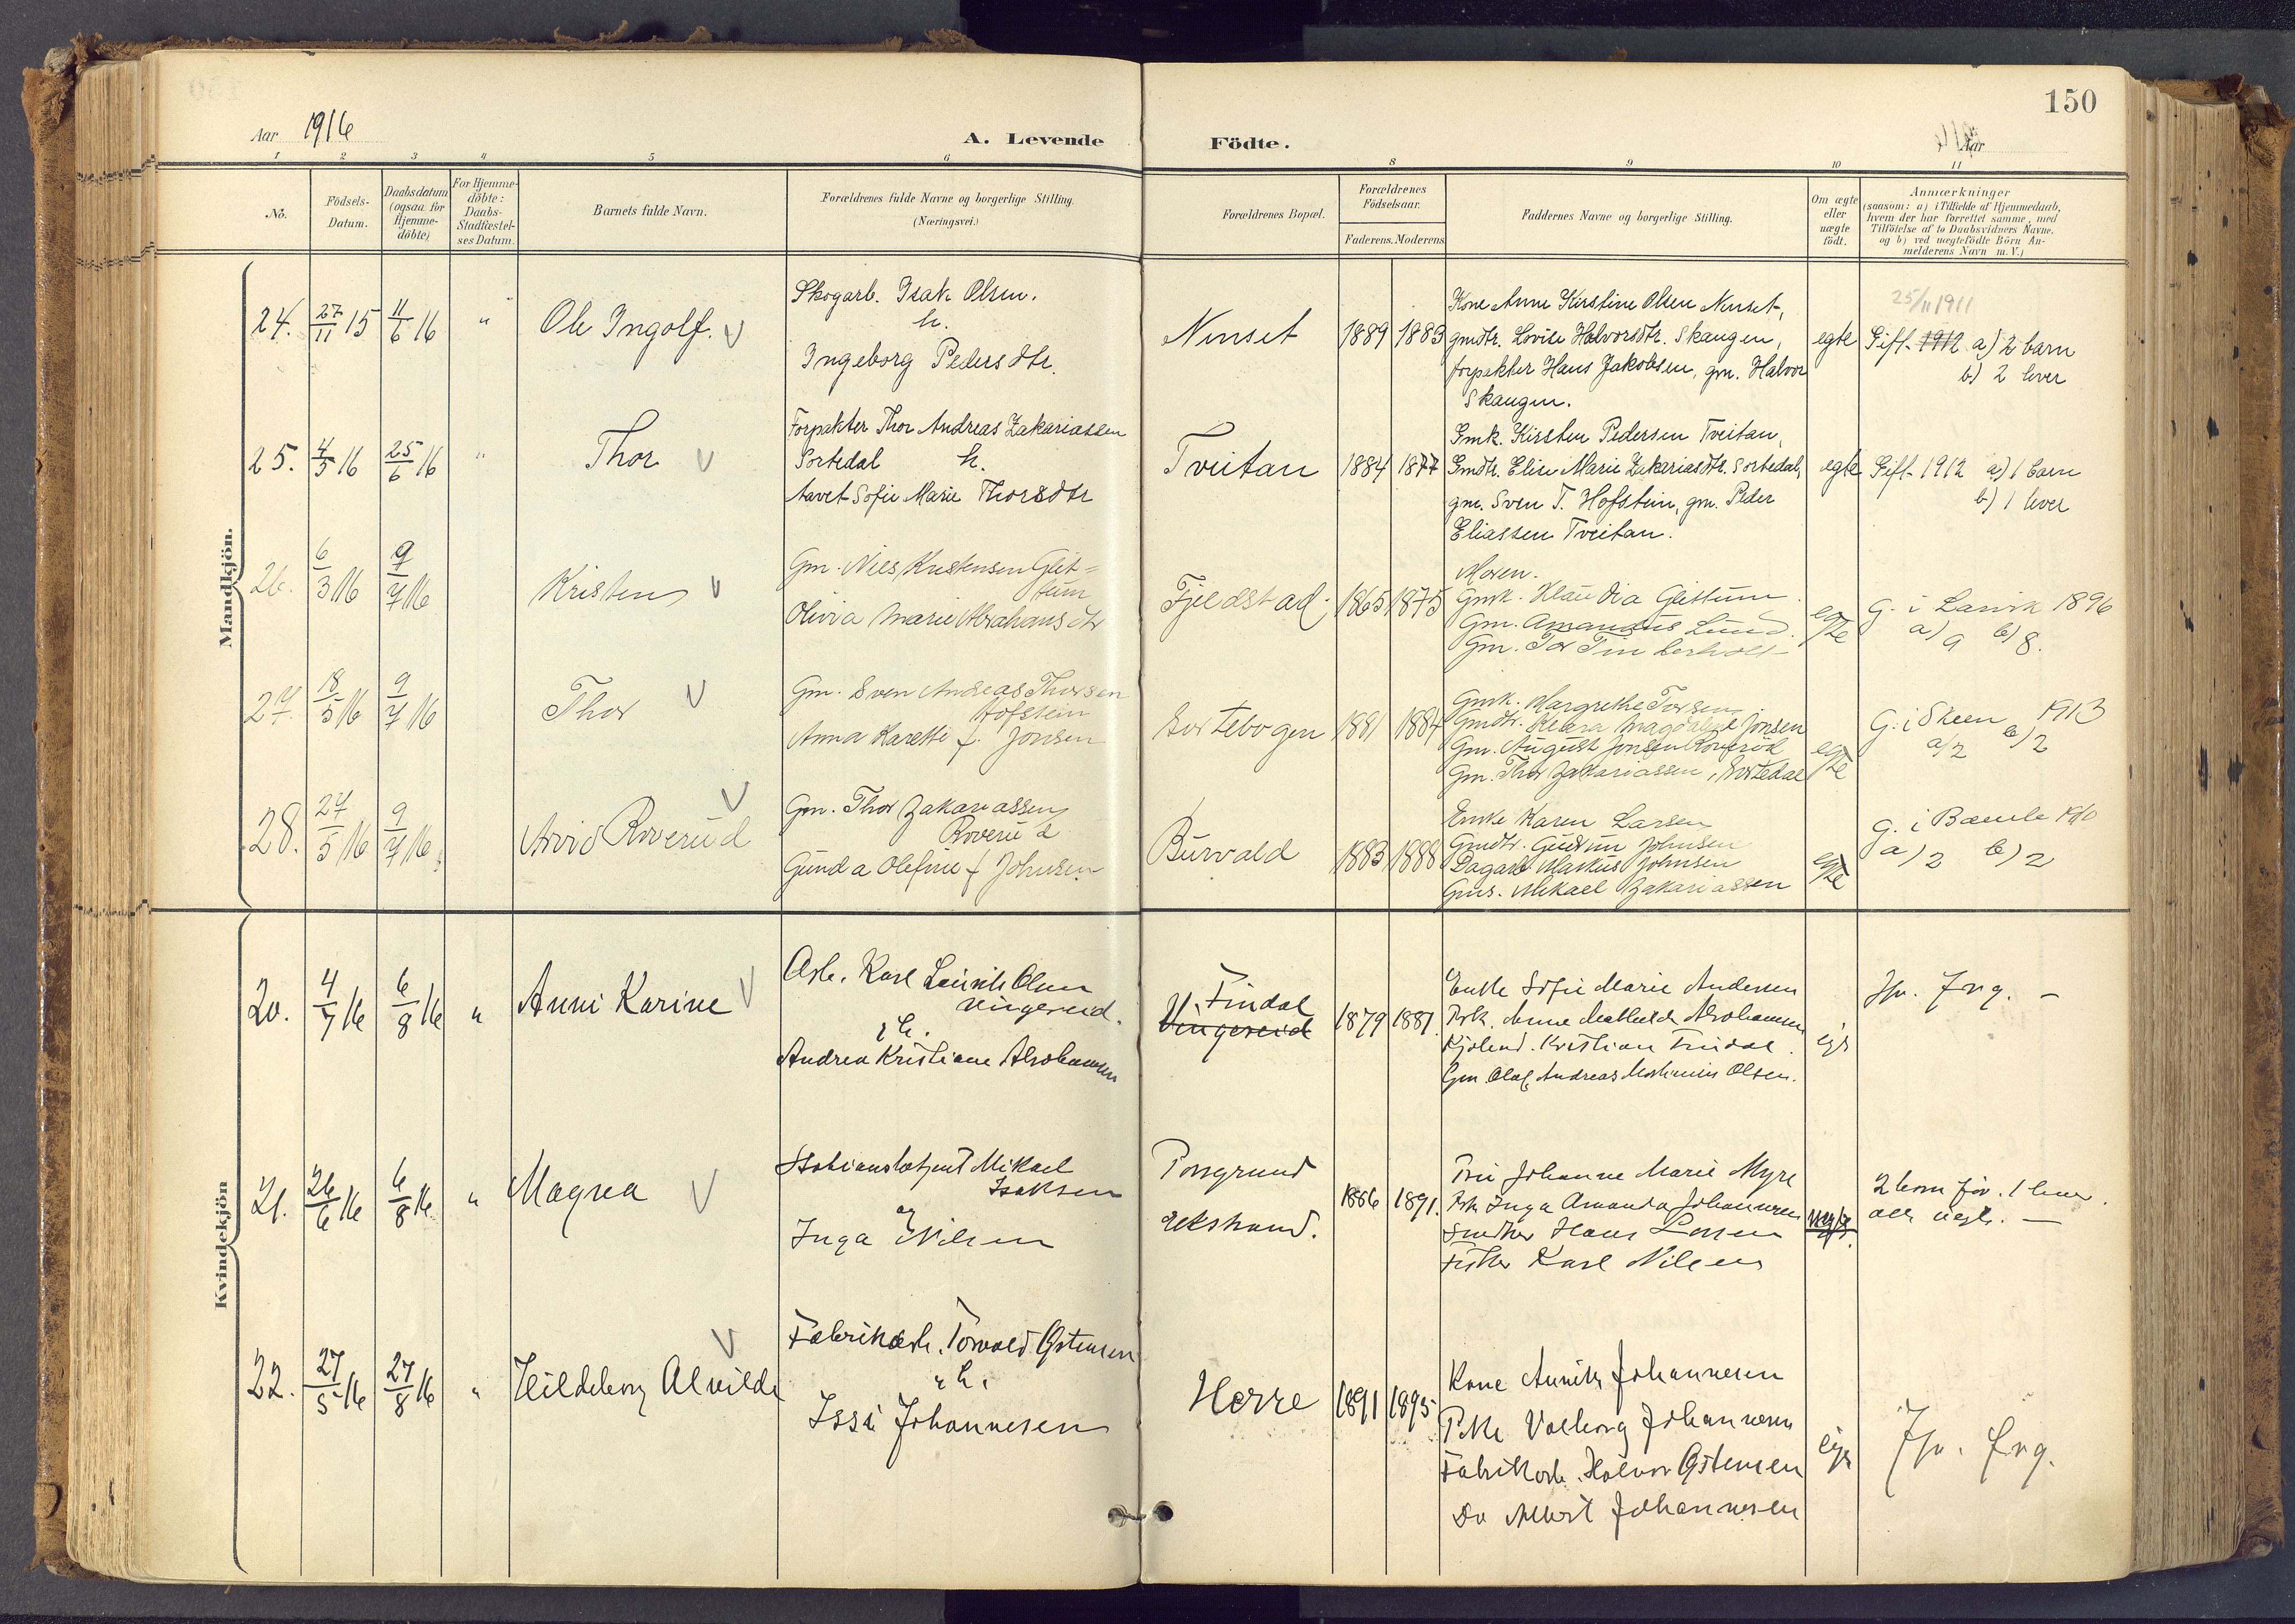 150
Aar 1916
A. Levende Födte.
Aar
1 2 3 4 5 6 8 9 10 11
No.
Födsels-Datum.
Daabsdatum (ogsaa for Hjemme-döbte)
For Hjemme-döbte: Daabs-Stadfæstel-ses Datum.
Barnets fulde Navn.
Forældrenes fulde Navne og borgerlige Stilling.
(Næringsvei.)
Forældrenes Bopæl.
Forældrenes Födselsaar.
Faderens. Moderens.
Faddernes Navne og borgerlige Stilling.
Om ægte eller uægte födt.
Anmærkninger
(saasom: a) i Tilfælde af Hjemmedaab,
hvem der har forrettet samme, med
Tilföielse af to Daabsvidners Navne.
og b) ved uægtefödte Börn An-
melderens Navn m. V.)
Mandkjön.
24. 27/11 15 11/6 16 " Ole Ingolf. V
Skogarb. Isak Olsen.
h.
Ingeborg Pedersdtr.
Nenset 1889 1883
Kone Anne Kirstine Olsen Nenset,
gmdtr. Lovise Halvorsdtr. Skaugen,
forpakter Hans Jakobsen, gm. Halvor
Skaugen.
egte
25/11 1911
Gift 1912 a) 2 barn
b) 2 lever
25. 4/5 16 25/6 16 " Thor V
Forpakter Thor Andreas Zakariassen
Sortedal h.
Aavet Sofie Marie Thorsdtr
Tveitan 1884 1877
Gmk. Kirsten Pedersen Tveitan,
Gmdtr. Elise Marie Zakariasdtr. Sortedal,
gm. Sven T. Hofstein, gm. Peder
Eliassen Tveitan.
egte
Gift 1912 a) 1 barn
b) 1 lever
26. 6/3 16 9/7 16 Kristen V
Gm. Niels Kristensen Glit=
tum
Olivia Marie Abrahamsdtr
Fjeldstad. 1865 1875
Moren.
Gmk. Klaudia Glittum.
Gm. Amandus Lund.
Gm. Tor Timberholt
egte
G. i Larvik 1896
a) 9 b) 8.
27. 18/5 16 9/7 16 Thor V
Gm. Sven Andreas Thorsen
Hofstein
Anna Karette f. Jonsen
Sortebogen 1881 1884
Gmk. Margrethe Torsen
Gmdtr. Klara Magdalene Jonsen
Gm. August Jonsen
Gm. Thor Zakariassen, Sortedal
egte
G. i Skeen 1913
a) 2 b) 2
28. 27/5 16 9/7 16 Arvid Roverud V
Gm. Thor Zakariassen
Roverud
Gunda Olefine f Johnsen
Burvald 1883 1888
Enke Karen Larsen
Gmdtr. Gudrun Johnsen
Dagarb Markus Johnsen
Gms. Mikael Zakariassen
egte
G. i Bamle 1910
a) 2 b) 2
Kvindekjön
20. 4/7 16 6/8 16 " Anni Karine V
Arb. Karl Olsen
Vingereid.
h.
Andrea Kristiane Abrahamsen
Findal
Vingereid 1879 1881.
Enke Sofie Marie Andersen
Pike. Anne Mathilde Abrahamsen
Kristian Findal.
Gm. Olaf Andreas Olsen.
21. 26/6 16 6/8 16 " Magna V
Mikael
Isaksen
og
Inga Nilsen
Porsgrund
Ekstrand. 1886 1891.
Fru Johanne Marie Myre
Pk Inga Amanda Johannesen
Hans Larsen
Fisker Karl Nilsen
22. 27/5 16 27/8 16 " Hildeborg Alvilde V
Fabrikarb. Torvald Østensen
h.
Issi Johannesen
Herre 1891 1895
Kone Annette Johannesen
Pike Valborg Johannesen
Fabrikarb. Halvor Østensen
Do Albert Johannesen